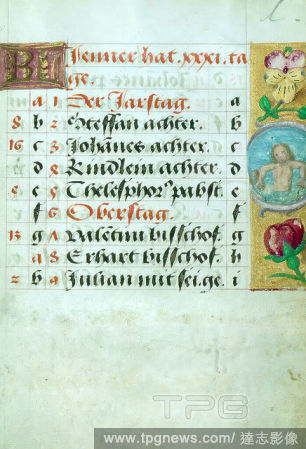 Jenner hat. xxxi. ta
ge.
a 1 Der Jarstag. a
8 b 2 Steffan achter. b
16 c 3 Johañes achter. c
d 4 Kindlein achter. d
e 5 Thelesphor9 pabst. e
f 6 Oberstag. f
13 g 7 Valētini bisschof. g
a 8 Erhart bisschof. h
2 b 9 Julian mit sei. ge. i
TPG
www.tpgnews.com/達志影像